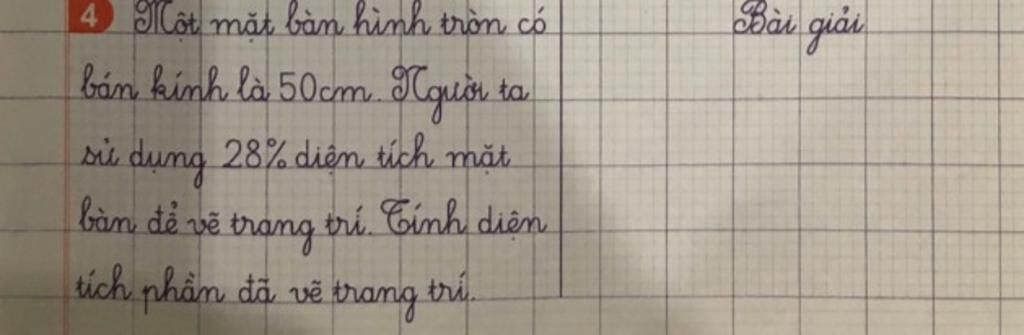 4 Một mặt bàn hình tròn có
bán kính là 50cm. Người ta
sử dụng 28% diện tích mặt
bàn để vẽ trang trí. Tính diện
tích phần đã vẽ trang trí.
Bài giải